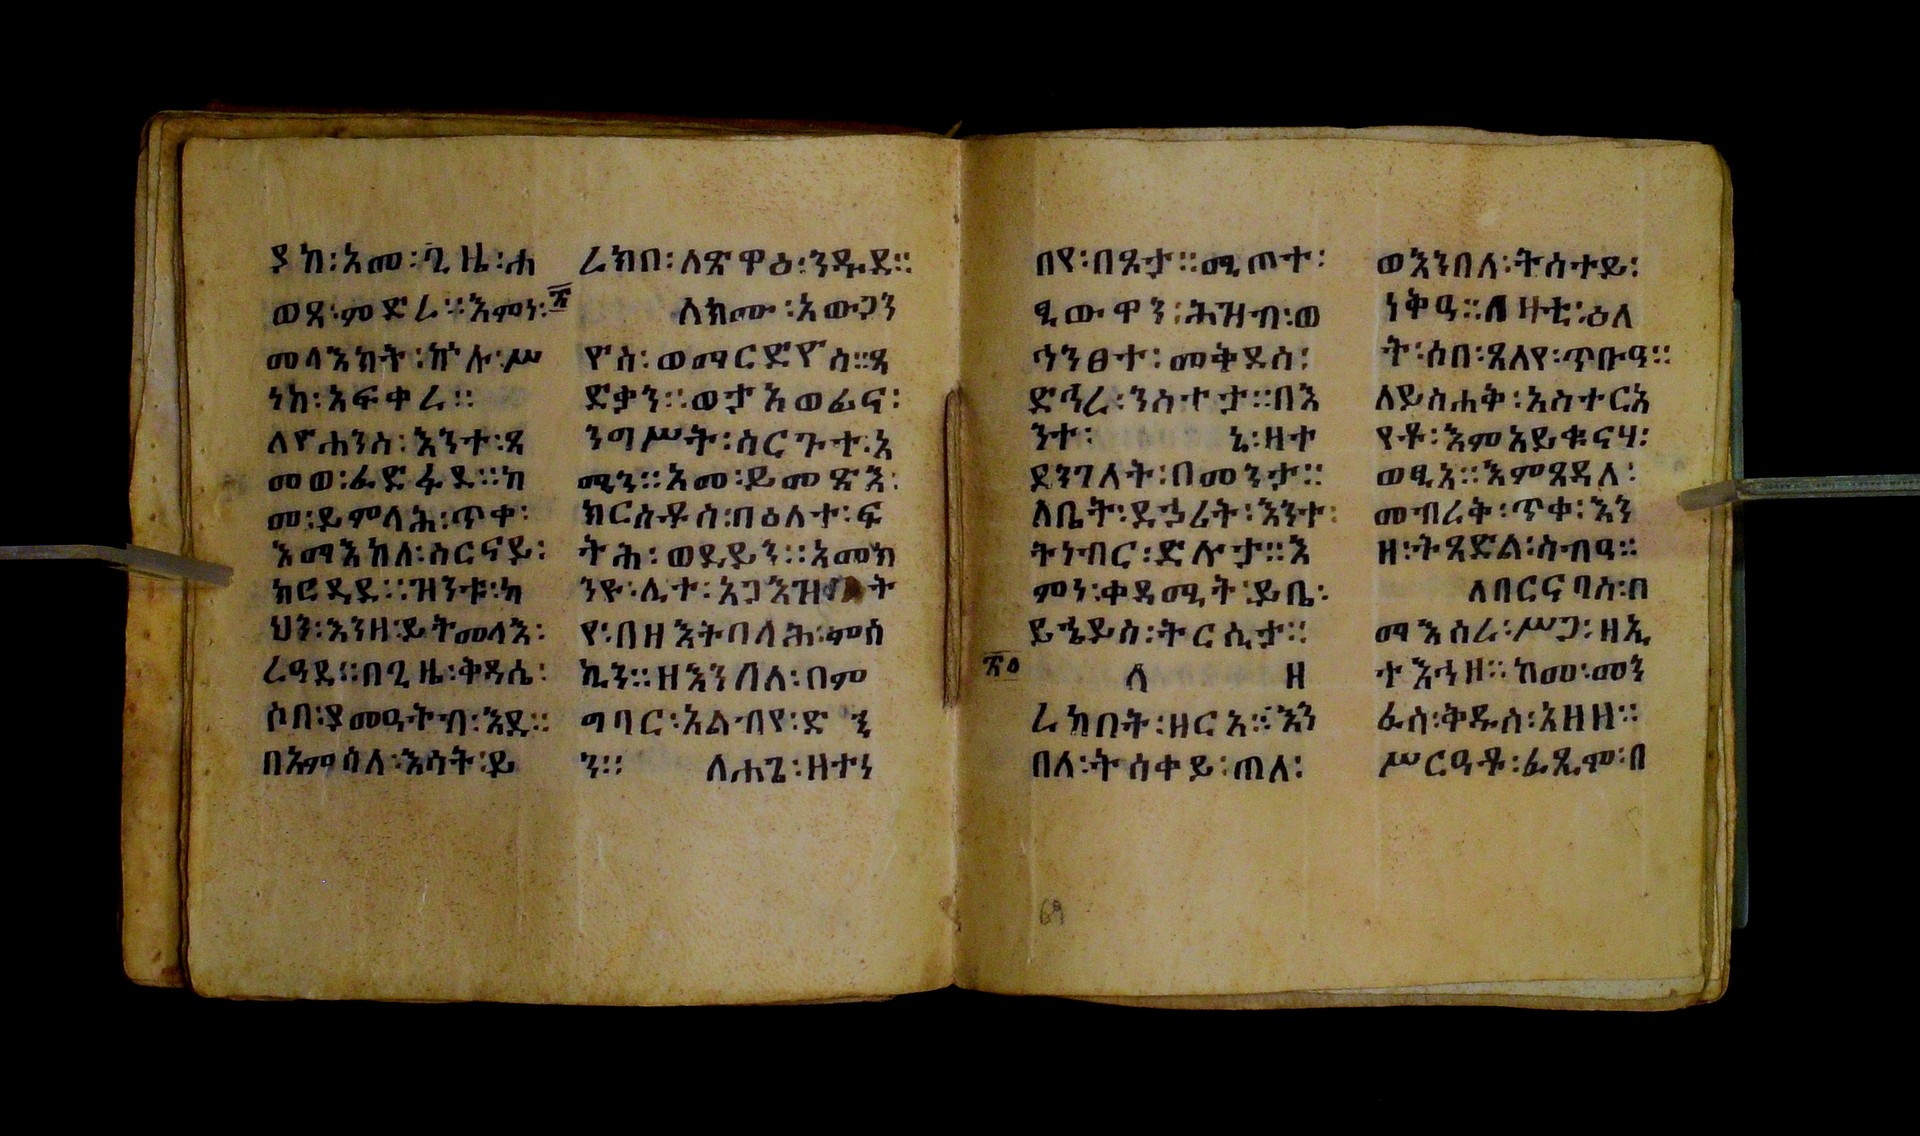 ያከ፡አመ፡ጊዜ፡ሐ
ወጻ፡ምድረ፡፡እምነ፡
መላእክት፡ኵሉ፡ሥ
ነከ፡አፍቀረ፡፡
ለዮሐንስ፡እንተ፡ጻ
መወ፡ፈድፋደ፡፡ከ
መ፡ይምላሕ፡ጥቀ፡
እማእከለ፡ስርናይ፡
ክርዳደ፡፡ዝንቱ፡ካ
ህን፡እንዘ፡ይትመላእ፡
ረዓደ፡፡በጊዜ፡ቅዳሴ፡
ሶበ፡ያመዓትብ፡እዴ፡፡
በአምሳለ፡እሳት፡ይ
ሬክበ፡ለጽዋዕ፡ንዱደ፡፡
፳
ስክሙ፡አውጋን
ዮስ፡ወማርድዮስ፡፡ጻ
ድቃን፡፡ወታአወፊና፡
ንግሥት፡ስርጉተ፡አ
ሚን፡፡አመ፡ይመጽእ፡
ክርስቶስ፡በዕለተ፡ፍ
ትሕ፡ወደይን፡፡አመክ
ንዮ፡ሊተ፡አጋእዝ ት
የ፡በዘእትባላሕ፡ምስ
ኪን፡፡ዘእንበለ፡በም
ግባር፡አልብየ፡ድኂ
ን፡፡ ለሐጌ፡ዘተነ
በየ፡በጻታ፡፡ሚጦተ፡
ጺውዋን፡ሕዝብ፡ወ
ኅንፀተ፡መቅደስ፡
ድኅረ፡ንስተታ፡፡በእ
ንተ፡ ኔ፡ዘተ
ደንገለት፡በመንታ፡፡
ለቤት፡ደኃሪት፡እንተ፡
ትነብር፡ድሉታ፡፡እ
ምን፡ቀዳሚት፡ይቤ፡
ይኄይስ፡ትርሲታ፡፡
ለ ዘ
ሬክበት፡ዘርአ፡፡እን
በለ፡ትሰቀይ፡ጠለ፡
ወእንበለ፡ትስተይ፡
ነቅዓ፡፡ለዛቲ፡ዕለ
ት፡ሶበ፡ጸለየ፡ጥቡዓ፡፡
ለይስሐቅ፡አስተርአ
የቶ፡እምአይቁናሃ፡
ወፂአ፡፡እምጸዳለ፡
መብረቅ፡ጥቀ፡እን
ዘ፡ትጻድል፡ስብዓ፡፡
ለበርናባስ፡በ
ማእሰረ፡ሥጋ፡ዘኢ
ተእኅዘ፡፡ከመ፡መን
ፈስ፡ቅዱስ፡አዘዘ፡፡
ሥርዓቶ፡ፈጺሞ፡በ
69